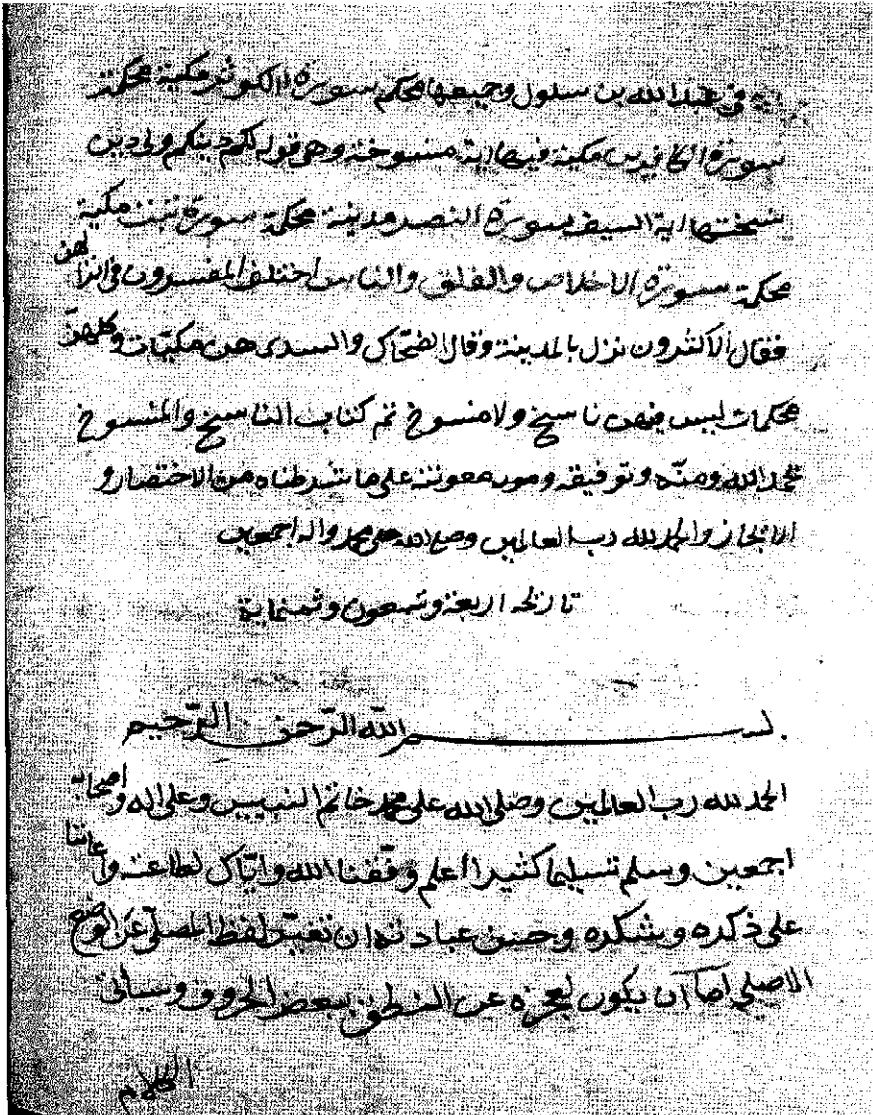 في عبد الله بن سلول وجميعها محكم سورة الكوثر مكية محكمة
سورة الكافرين مكية فيها اية منسوخة وهي قوله لكم دينكم ولي دين
نسختها اية السيف سورة النصر مدينة محكمة سورة تبت مكية
محكمة سورة الاخلاص والفلق والناس اختلف المفسرون في انزالهن
فقال الاكثرون نزل بالمدينة وقال الضحّاك والسدى هن مكيّات وكلهنّ
محكمات ليس فيهن ناسخ ولا منسوخ تم كتاب الناسخ والمنسوخ
بحمد الله ومنّه وتوفيقه معونته على ما شرطناه من الاختصار و
الايجاز والحمد لله رب العالمين وصلى الله على محمد واله اجمعين
تاريخه اربعة وتسعون وثمنماية
بسم الله الرّحمن الرّحيم
الحمد لله رب العالمين وصلى الله على محمد خاتم النبيين وعلى اله واصحابه
اجمعين وسلم تسليما كثيرا اعلم وفّقنا الله وايّاك لطاعته واعاننا
على ذكره وشكره وحسن عبادته ان تغيّر لفظ المصلّي عن الوضع
الاصلي اما ان يكون لعجزه عن النطق ببعض الحروف وسياتي
الكلام